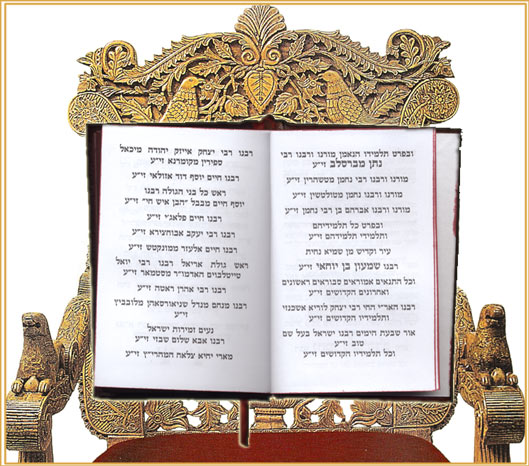 ובפרט תלמידו הנאמן מורנו ורבנו רבי
נתן מברסלב זי״ע
מורנו ורבנו רבי נחמן מטשהרין זי״ע
מורנו ורבנו נחמן מטולטשין זי״ע
מורנו ורבנו אברהם בן רבי נחמן זי״ע
ובפרט כל תלמידיהם
ותלמידי תלמידהם זי״ע
עיר וקדיש מן שמיא נחית
רבנו שמעון בן יוחאי זי״ע
וכל התנאים אמוראים סבוראים ראשונים
ואחרונים הקדושים זי״ע
רבנו האר״י החי רבי יצחק לוריא אשכנזי
ותלמידיו הקדושים זי״ע
אור שבעת הימים רבנו ישראל בעל שם
טוב זי״ע
וכל תלמידיו הקדושים זי״ע
רבנו רבי יצחק אייזק יהודה מיכאל
ספרין מקומרנא זי״ע
רבנו חיים יוסף דוד אזולאי זי״ע
ראש כל בני הגולה רבנו
יוסף חיים מבבל ״הבן איש חי״ זי״ע
רבנו חיים פלאג׳י זי״ע
רבנו רבי יעקב אבוחצירא זי״ע
רבנו חיים אלעזר ממונקטש זי״ע
ראש גולת אריאל רבנו רבי יואל
טייטלבוים האדמו״ר מסטמאר זי״ע
רבנו רבי אהרן ראטה זי״ע
רבנו מנחם מנדל שניאורסאהן מלובביץ
זי״ע
נעים זמירות ישראל
רבנו אבא שלום שבזי זי״ע
מארי יחיא צלאח המהרי״ץ זי״ע